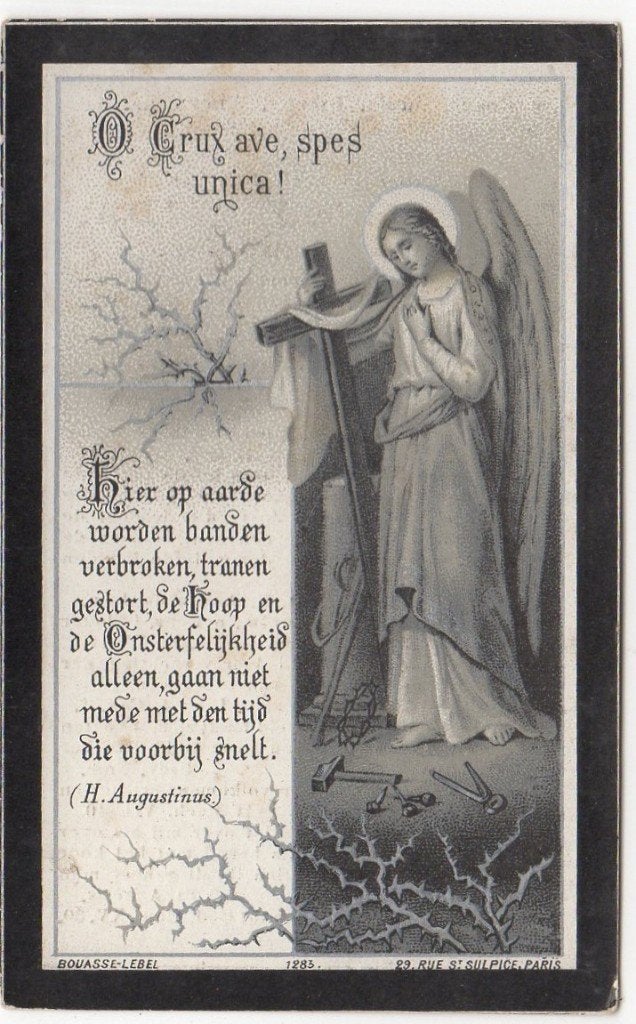 O Crux ave, spes
unica!
Hier op aarde
worden banden
verbroken, tranen
gestort, de Hoop en
de Onsterfelijkheid
alleen, gaan niet
mede met den tijd
die voorbij snelt.
(H. Augustinus)
BOUASSE-LEBEL 1283. 29, RUE ST SULPICE, PARIS